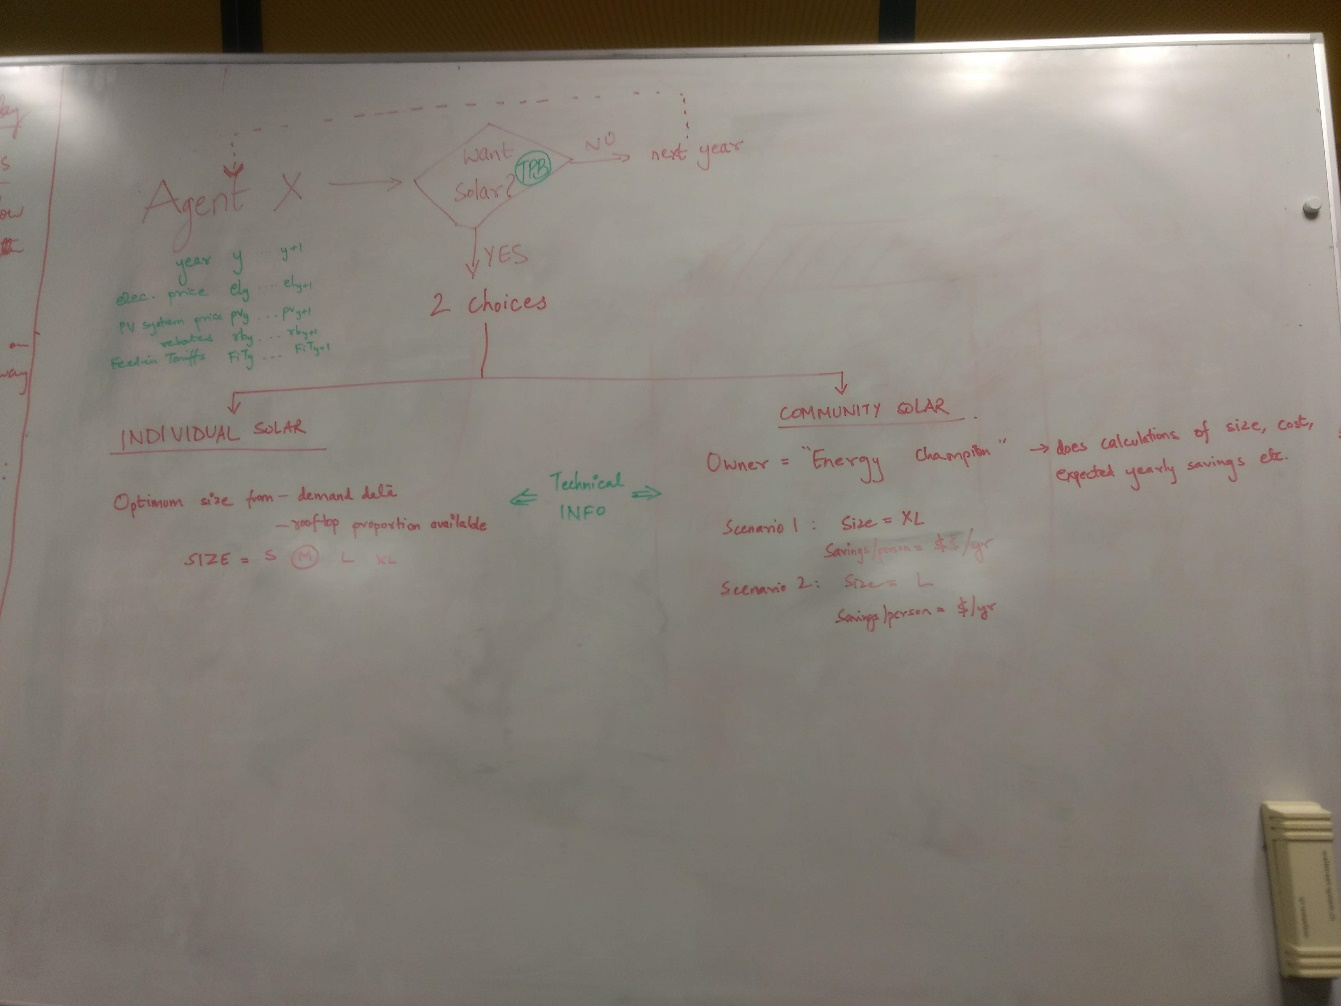 NO
want
TPB
next year
Solar?
Agent X
YES
year y ... y+1
elec. price ely ... ely+1
2 Choices
PV system price pvy ... pvy+1
rebates rby ... rby+1
Feed-in Tariffs FiTy ... FiTy+1
INDIVIDUAL SOLAR
Optimum size from - demand data
- rooftop proportion available
SIZE = S M L XL
Technical
INFO
COMMUNITY SOLAR
Owner = "Energy Champion" → does calculations of size, cost,
expected yearly savings etc.
Scenario 1: Size = XL
Savings/person = $$/yr
Scenario 2: Size = L
Savings/person = $/yr